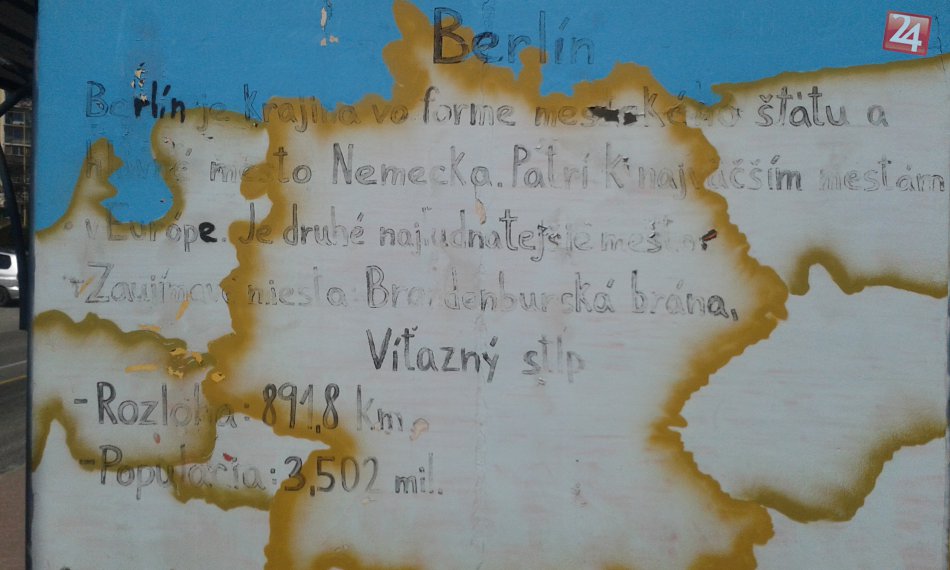 Berlín
24
Berlín je krajina vo forme mestského štátu a
hlavné mesto Nemecka. Patrí k najväčším mestám
v Európe. Je druhé najľudnatejšie mesto.
-Zaujímavé miesta Brandenburská brána,
Víťazný stĺp
-Rozloha: 891,8 km
-Populácia: 3,502 mil.